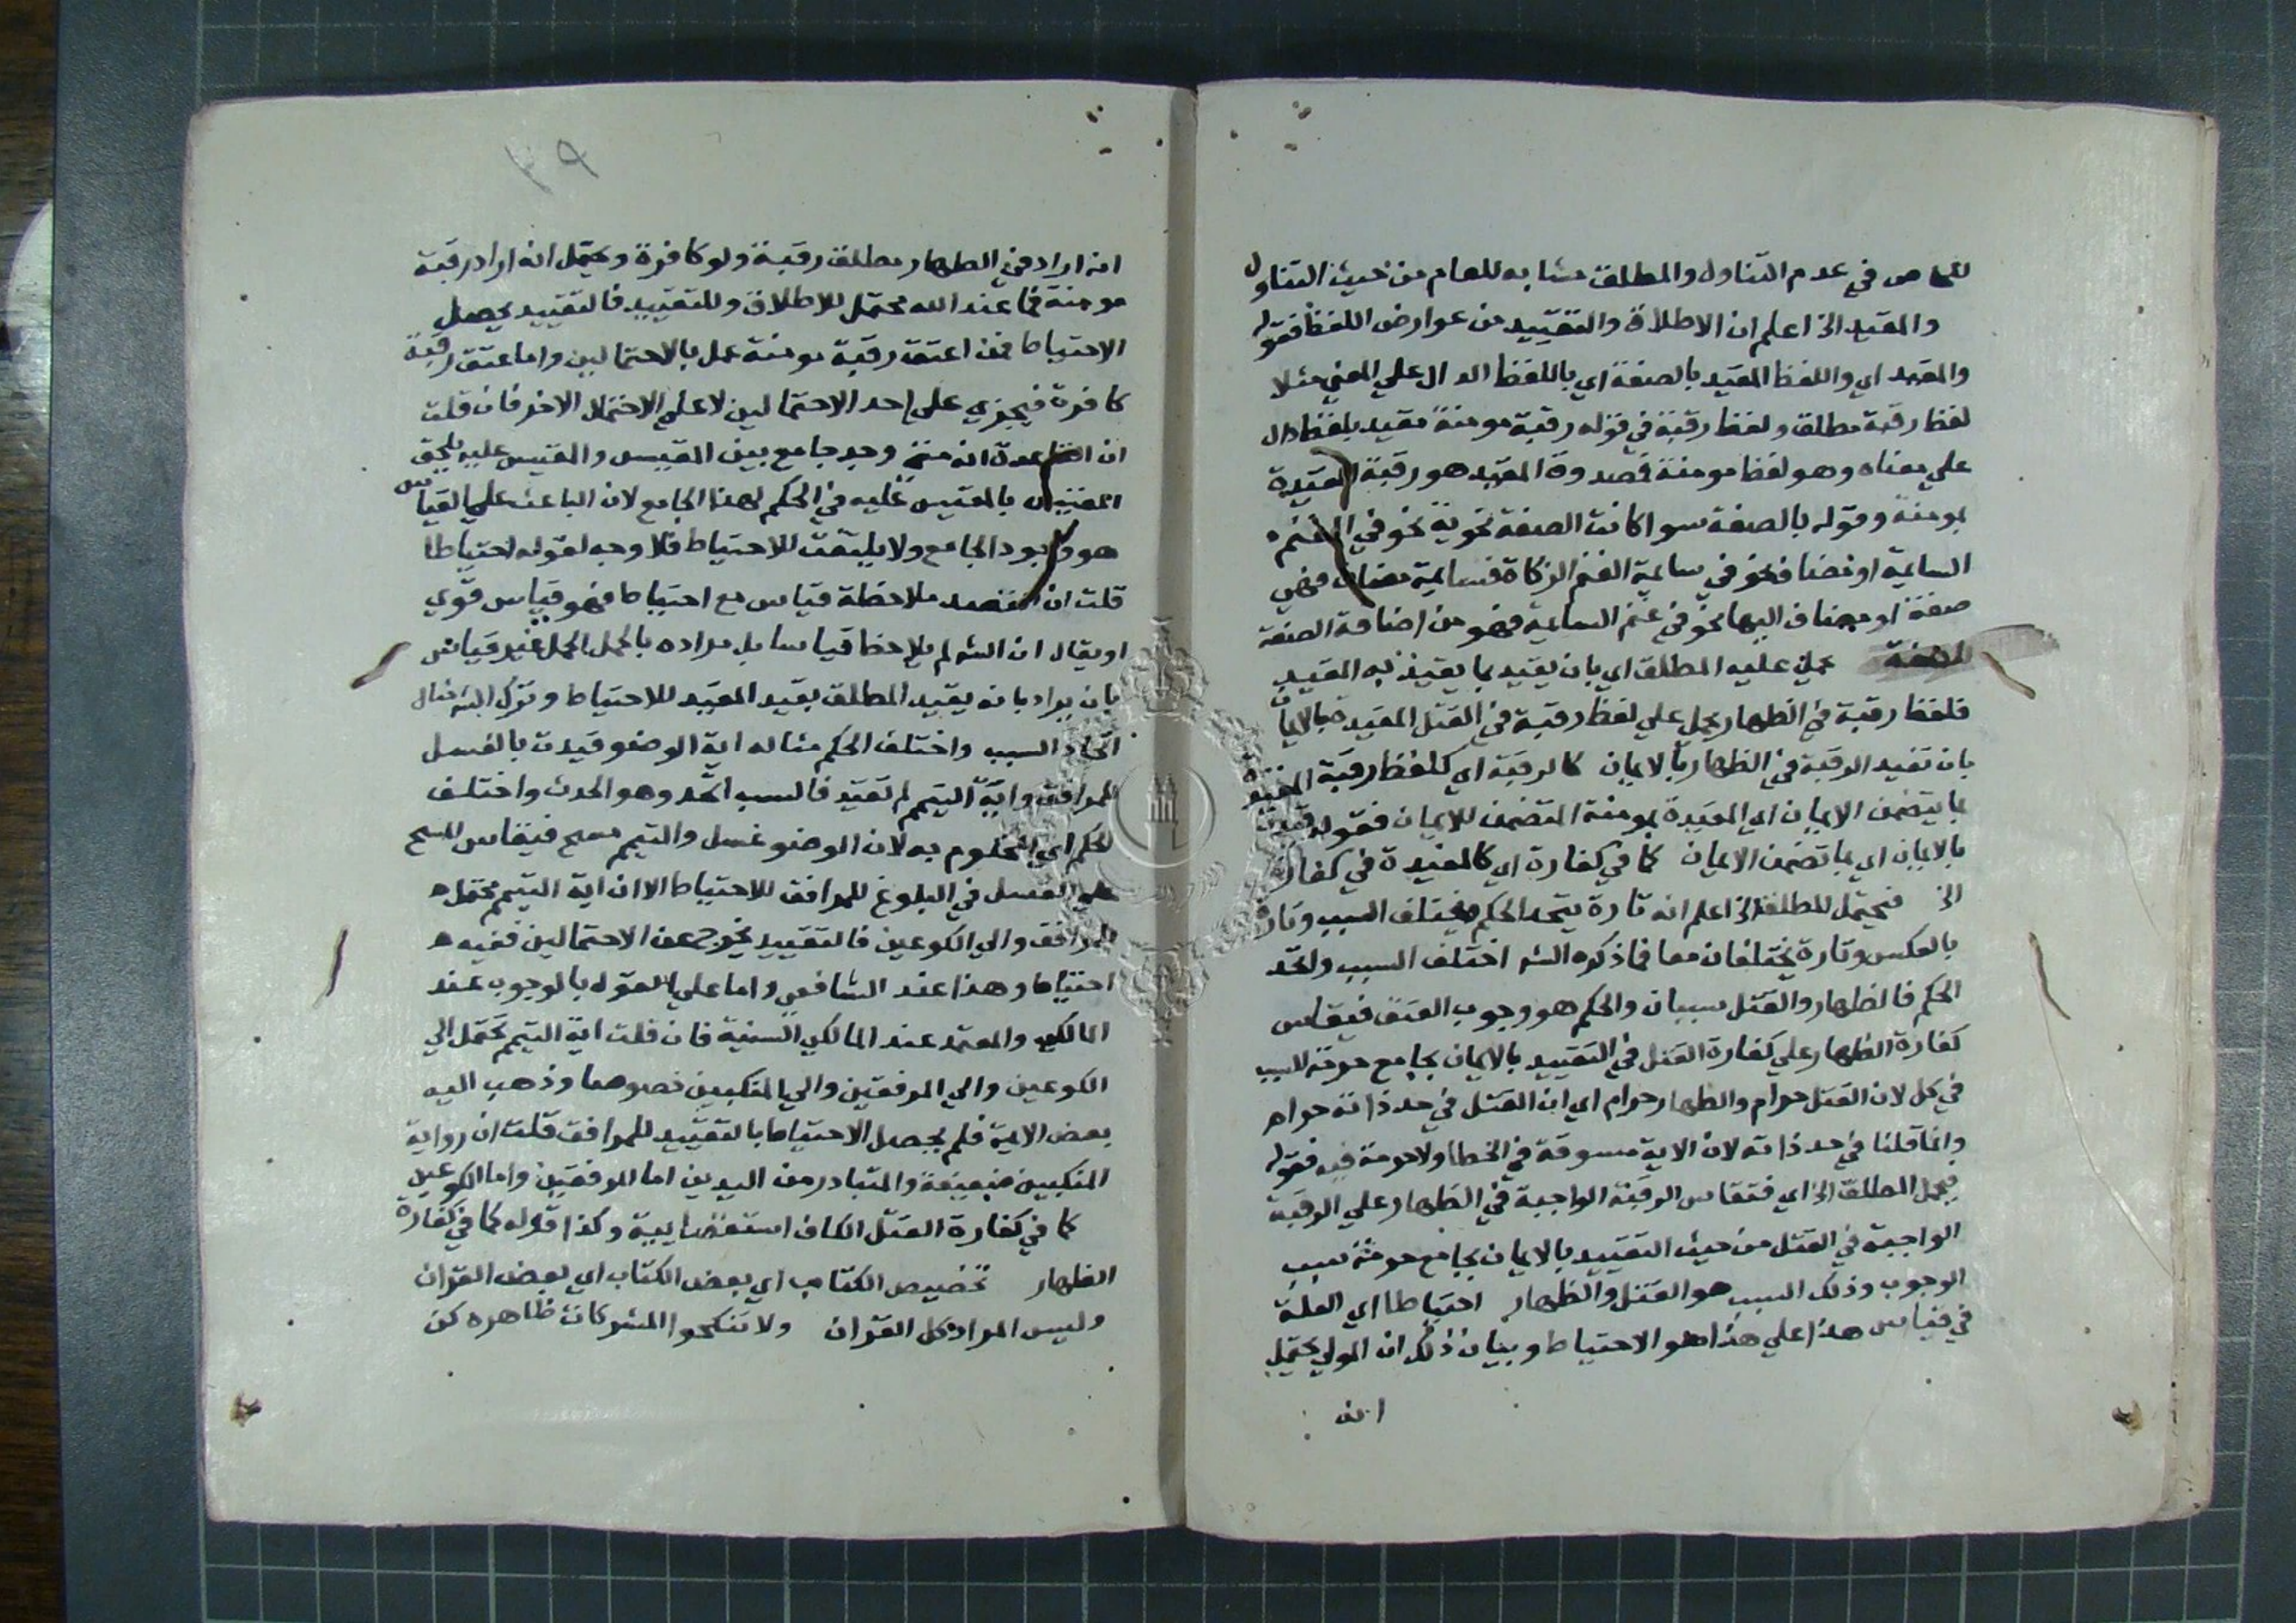 للخاص في عدم التناول والمطلق مشابه للعام من حيث التناول
والمقيد الخ اعلم ان الاطلاق والتقييد من عوارض اللفظ فقوله
والمقيد اي واللفظ المقيد بالصفة اي باللفظ الدال علي المعني مثلا
لفظ رقبة مطلق ولفظ رقبة في قوله رقبة مومنة مقيد بلفظ دال
علي معناه وهو لفظ مومنة فصدوق المقيد هو رقبة المقيدة
بومنة وقوله بالصفة سوا كانت الصفة نحوية نحو في الغنم
السايمة او مضاف نحو في سايمة الغنم الزكاة فسايمة مضاف فهي
صفة او مضاف اليها نحو في غنم السايمة فهو من اضافة الصفة
حمل عليه المطلق اي بان يقيد بما يقيد به المقيد
فلفظ رقبة في الظهار يحمل علي لفظ رقبة في القتل المقيد بالايمان
بان تقيد الرقبة في الظهار بالايمان كالرقبة اي كلفظ رقبة المقيدة
بما يتضمن الايمان اي المقيدة بمومنة المتضمن للايمان فقوله قيدت
بالايمان اي بما تضمن الايمان كما في كفارة اي كالمقيدة في كفارة
الخ فيحمل المطلق الخ اعلم انه تارة يتحد الحكم ويختلف السبب وتارة
بالعكس وتارة يختلفان معا فما ذكره الشه اختلف السبب واتحد
الحكم فالظهار والقتل سببان والحكم هو وجوب العتق فيقاس
كفارة الظهار علي كفارة القتل في التقييد بالايمان بجامع حرمة السبب
في كل لان القتل حرام والظهار حرام اي ان القتل في حد ذاته حرام
وانما قلنا في حد ذاته لان الاية مسوقة في الخطا ولا حرمة فيه فقوله
فيحمل المطلق الخ اي فتقاس الرقبة الواجبة في الظهار علي الرقبة
الواجبة في القتل من حيث التقييد بالايمان بجامع حرمة سبب
الوجوب وذلك السبب هو القتل والظهار احتياطا اي العلة
في قياس هذا علي هذا هو الاحتياط وبيان ذلك ان المولي يحتمل
انه
٣٩
انه اراد في الظهار مطلق رقبة ولو كافرة ويحتمل انه اراد رقبة
مومنة فما عند الله محتمل للاطلاق وللتقييد فالتقييد يحصل
الاحتياط فمن اعتق رقبة مومنة عمل بالاحتمالين واما عتق رقبة
كافرة فيجزي علي احد الاحتمالين لا علي الاحتمال الاخر فان قلت
ان القاعدة انه متي وجد جامع بين المقيس والمقيس عليه يلحق
المقيس بالمقيس عليه في الحكم لهذا الجامع لان الباعث علي القياس
هو وجود الجامع ولا يلتفت للاحتياط فلا وجه لقوله احتياطا
قلت ان القصد ملاحظة قياس مع احتياط فهو قياس قوي
او يقال ان الشه لم يلاحظ قياسا بل مراده بالحمل الحمل غير قياس
بان يراد بانه يقيد المطلق بقيد المقيد للاحتياط وترك الشه مثال
اتحاد السبب واختلف الحكم مثاله اية الوضو قيدت بالغسل
للمرافق واية التيمم لم تقيد فالسبب اتحد وهو الحدث واختلف
الحكم اي المحكوم به لان الوضو غسل والتيمم مسح فيقاس المسح
علي الغسل في البلوغ للمرافق للاحتياط الا ان اية التيمم محتمل
للمرافق والي الكوعين فالتقييد يخرج عن الاحتمالين ففيه
احتياط وهذا عند الشافعي واما علي القول بالوجوب عند
المالكي والمعتمد عند المالكي السنية فان قلت اية التيمم تحتمل الي
الكوعين والي المرفقين والي المنكبين خصوصا وذهب اليه
بعض الايمة فلم يحصل الاحتياط بالتقييد للمرافق قلت ان رواية
المنكبين ضعيفة والمتبادر من اليدين اما المرفقين واما الكوعين
كما في كفارة القتل الكاف استقصايية وكذا قوله كما في كفارة
الظهار تخصيص الكتاب اي بعض الكتاب اي بعض القران
وليس المراد كل القران ولا تنكحوا المشركات ظاهره كن